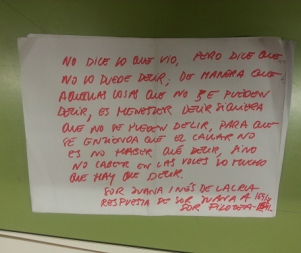 NO DICE LO QUE VIO, PERO DICE QUE
NO LO PUEDE DECIR; DE MANERA QUE
AQUELLAS COSAS QUE NO SE PUEDEN
DECIR, ES MENESTER DECIR SIQUIERA
QUE NO SE PUEDEN DECIR, PARA QUE
SE ENTIENDA QUE EL CALLAR NO
ES NO HABER QUÉ DECIR, SINO
NO CABER EN LAS VOCES LO MUCHO
QUE HAY QUE DECIR.
SOR JUANA INÉS DE LA CRUZ
RESPUESTA DE SOR JUANA A
SOR FILOTEA